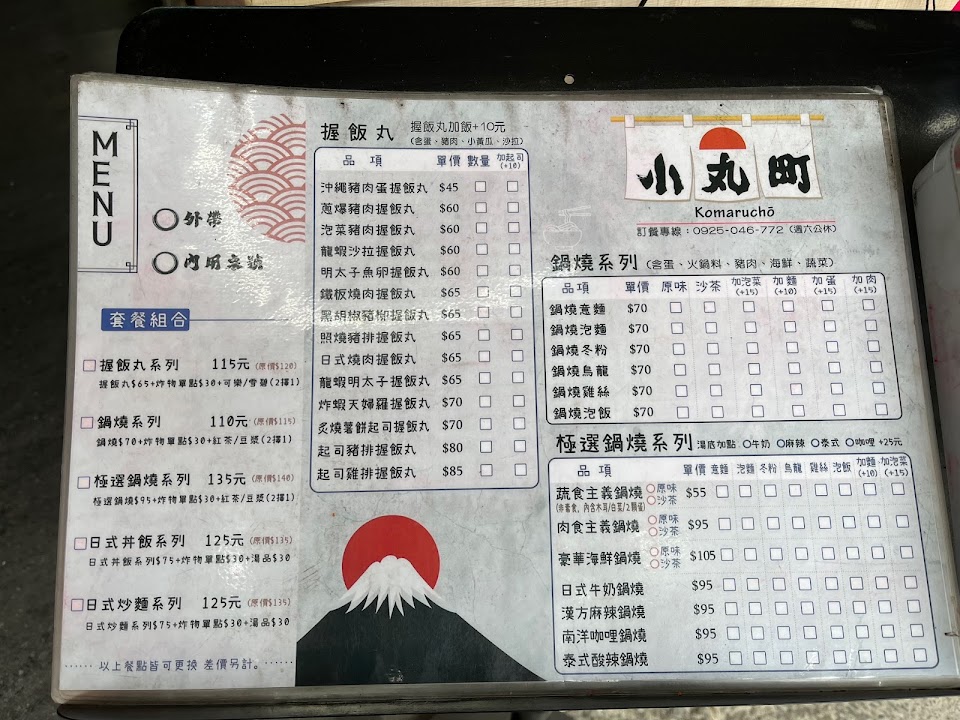 MENU
外帶
內用桌號
套餐組合
握飯丸系列 115元 (原價$120)
握飯丸$65+炸物單點$30+可樂/雪碧(2擇1)
鍋燒系列 110元 (原價$115)
鍋燒$70+炸物單點$30+紅茶/豆漿(2擇1)
極選鍋燒系列 135元 (原價$140)
極選鍋燒$95+炸物單點$30+紅茶/豆漿(2擇1)
日式丼飯系列 125元 (原價$135)
日式丼飯系列$75+炸物單點$30+湯品$30
日式炒麵系列 125元 (原價$135)
日式炒麵系列$75+炸物單點$30+湯品$30
以上餐點皆可更換 差價另計。
握飯丸 握飯丸加飯+10元
(含蛋、豬肉、小黃瓜、沙拉)
品項 單價 數量 加起司(+10)
沖繩豬肉蛋握飯丸 $45
蔥爆豬肉握飯丸 $60
泡菜豬肉握飯丸 $60
龍蝦沙拉握飯丸 $60
明太子魚卵握飯丸 $60
鐵板燒肉握飯丸 $65
黑胡椒豬柳握飯丸 $65
照燒豬排握飯丸 $65
日式燒肉握飯丸 $65
龍蝦明太子握飯丸 $65
炸蝦天婦羅握飯丸 $70
炙燒薯餅起司握飯丸 $70
起司豬排握飯丸 $80
起司雞排握飯丸 $85
小丸町
Komaruchō
訂餐專線：0925-046-772（週六公休）
鍋燒系列 (含蛋、火鍋料、豬肉、海鮮、蔬菜)
品項 單價 原味 沙茶 加泡菜(+15) 加麵(+10) 加蛋(+15) 加肉(+15)
鍋燒意麵 $70
鍋燒泡麵 $70
鍋燒冬粉 $70
鍋燒烏龍 $70
鍋燒雞絲 $70
鍋燒泡飯 $70
極選鍋燒系列 湯底加點 牛奶 麻辣 泰式 咖哩 +25元
品項 單價 意麵 泡麵 冬粉 烏龍 雞絲 泡飯 加麵(+10) 加泡菜(+15)
蔬食主義鍋燒 原味 沙茶 $55
(非素食, 內含木耳/白菜/2顆蛋)
肉食主義鍋燒 原味 沙茶 $95
豪華海鮮鍋燒 原味 沙茶 $105
日式牛奶鍋燒 $95
漢方麻辣鍋燒 $95
南洋咖哩鍋燒 $95
泰式酸辣鍋燒 $95